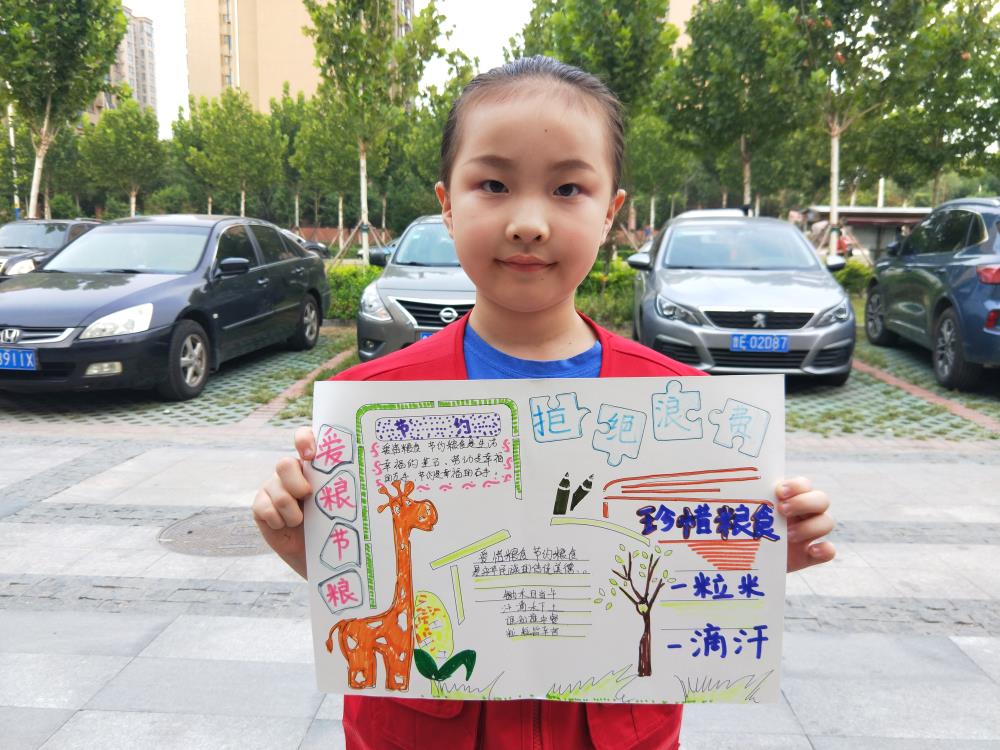 拒绝浪费
节约
爱惜粮食 节约粮食是生活
幸福的基石、劳动是幸福
的右手、节约是幸福的左手。
爱粮节粮
珍惜粮食
爱惜粮食 节约粮食
是中华民族的传统美德。
锄禾日当午
汗滴禾下土
谁知盘中餐
粒粒皆辛苦
一粒米
一滴汗
8911X
E·02D87